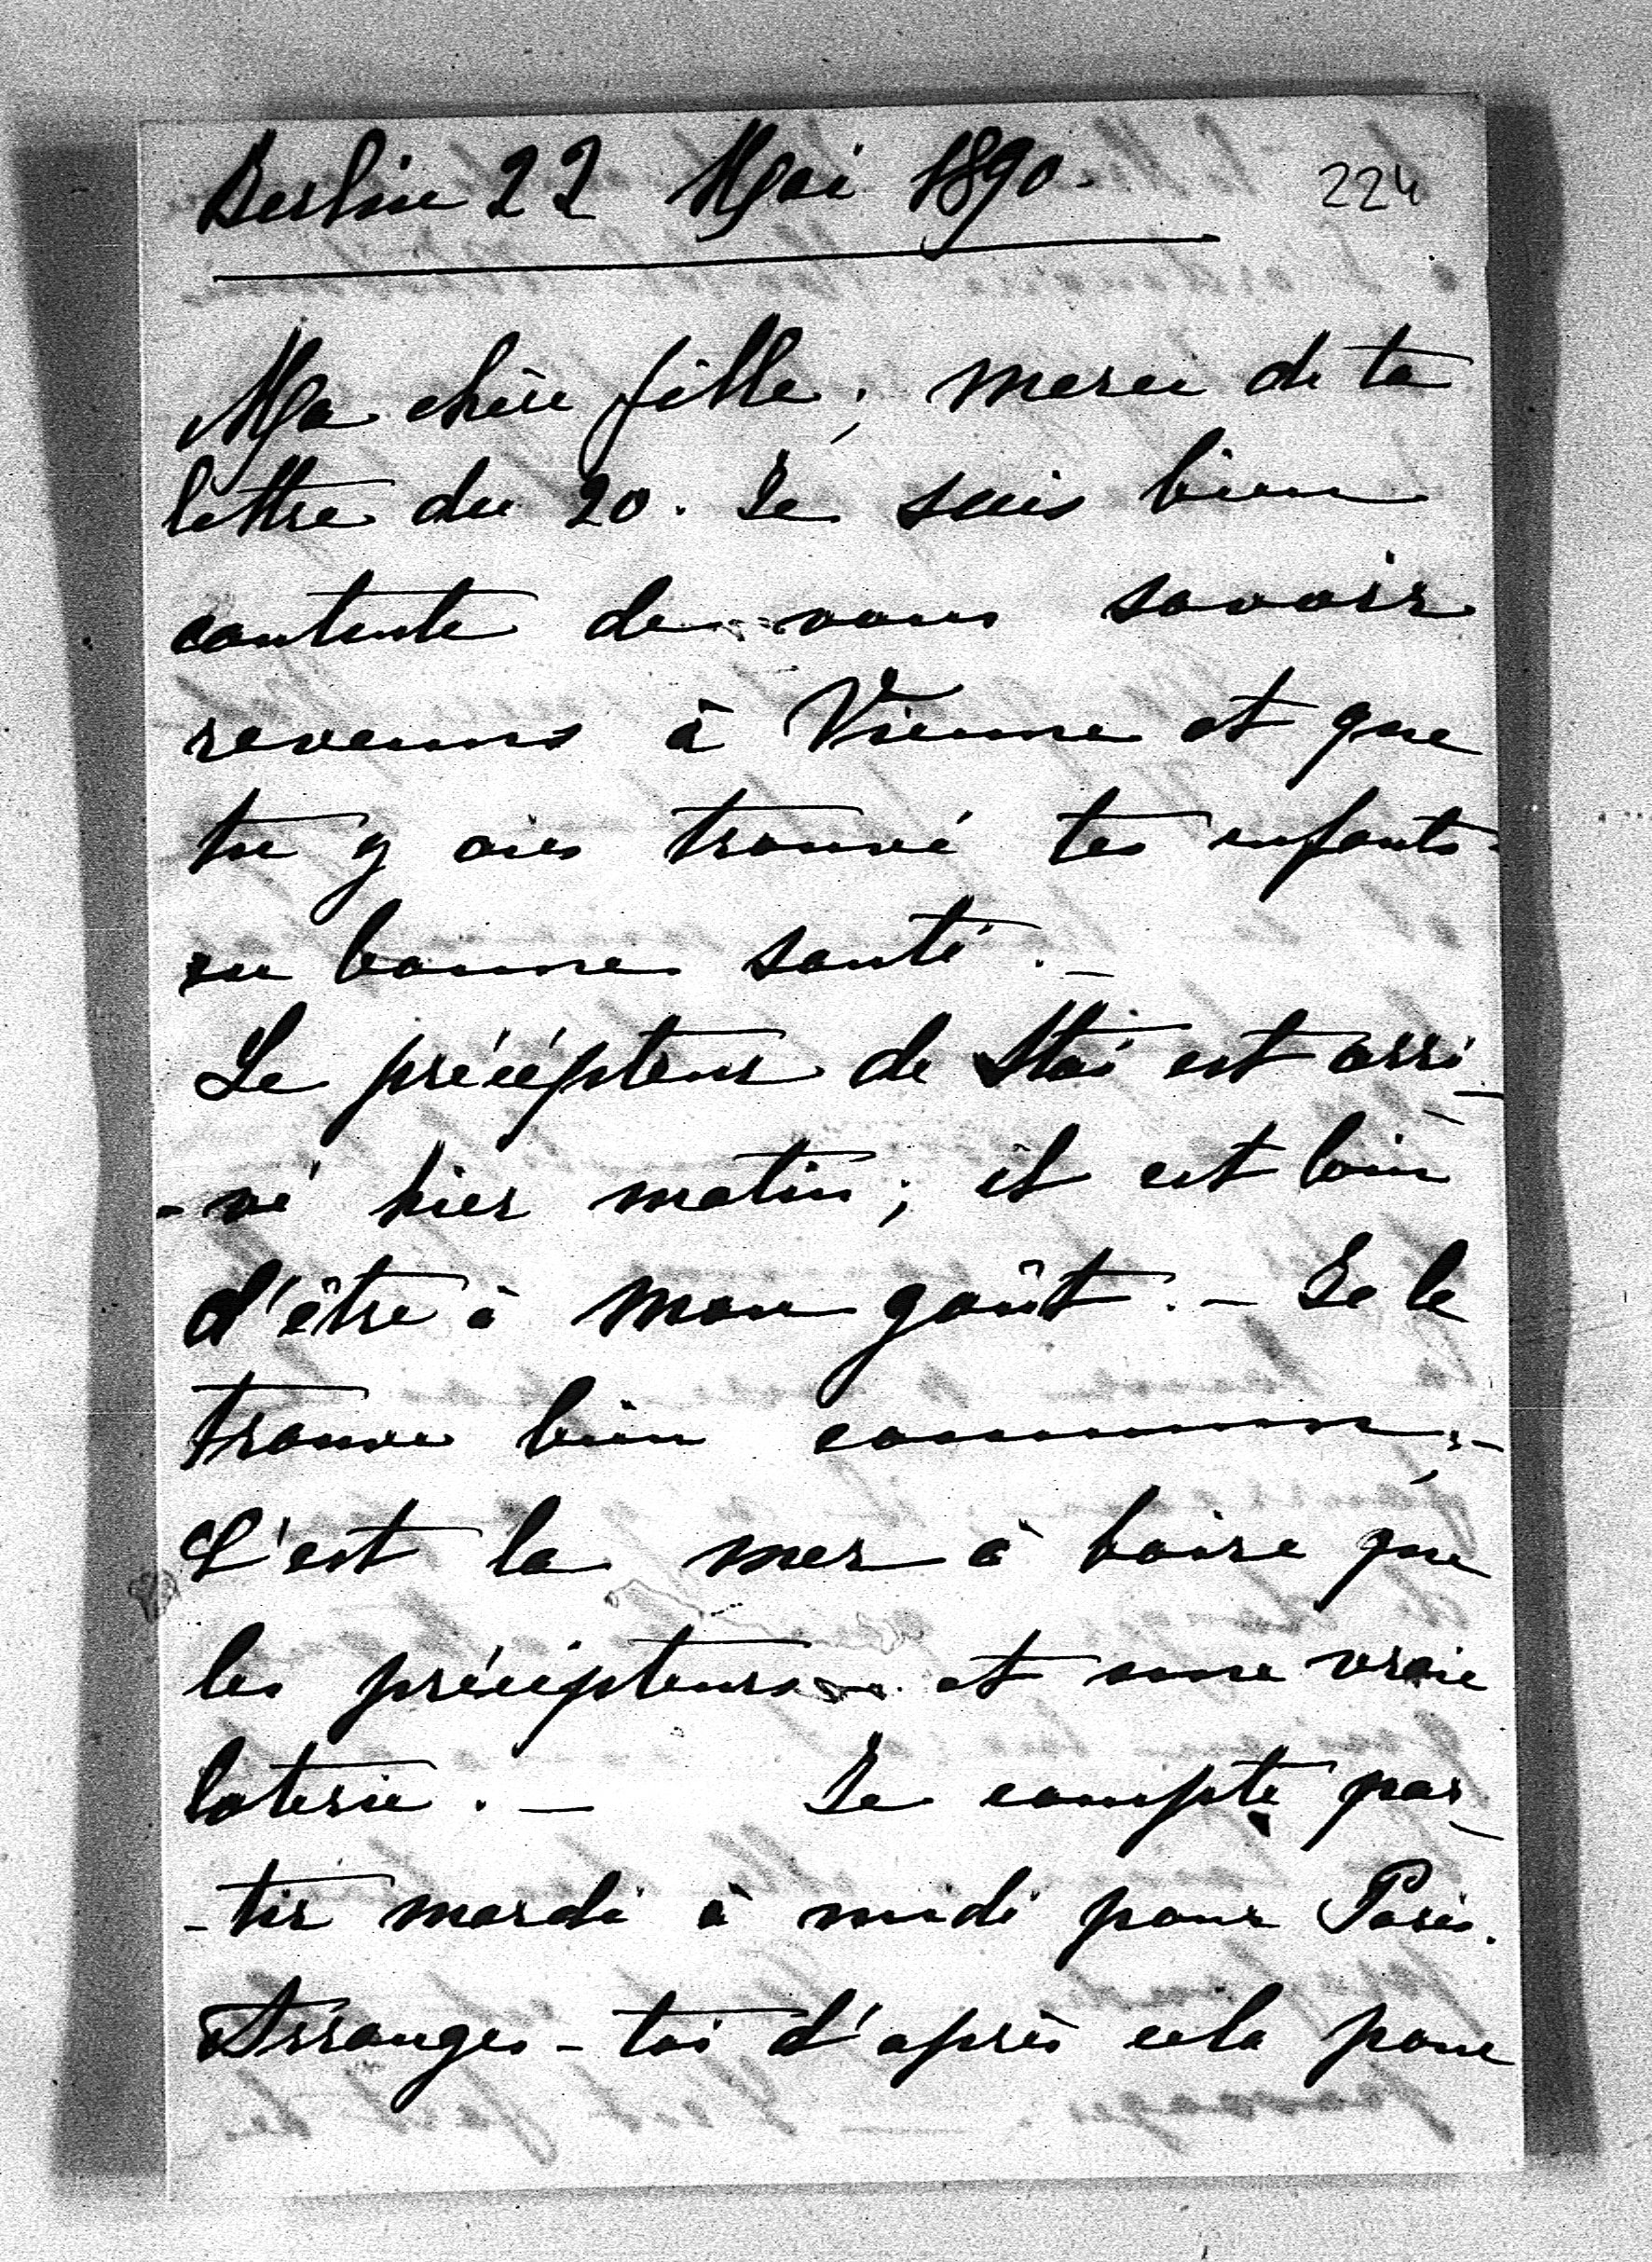 Berlin 22 Mai 1890. 224
Ma chère fille, merci de ta
lettre du 20. Je suis bien
contente de vous savoir
revenus à Vienne et que
tu y aies trouvé tes enfants
en bonne santé. _
Le précépteur de Stas est arri_
-vé hier matin; il est loin
d'être à mon goût. _ Je le
trouve bien commun. _
C'est la mer à boire que
les précépteurs et une vraie
loterie. _ Je compte par_
-tir mardi à midi pour Paris.
Arranges-toi d'après cela pour